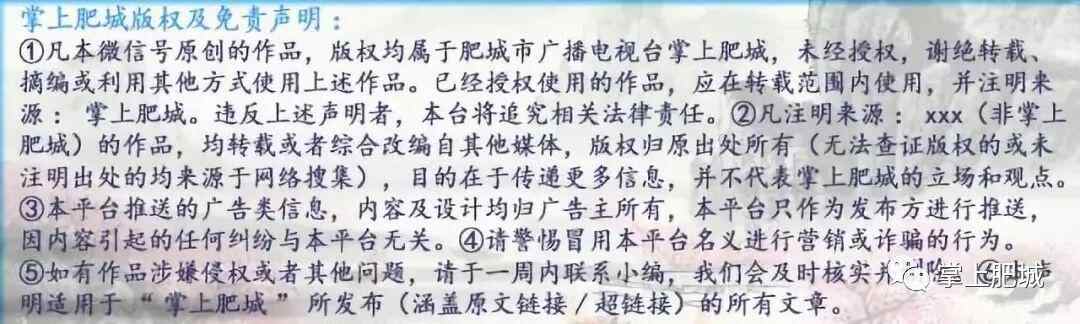 掌上肥城版权及免责声明：
①凡本微信号原创的作品，版权均属于肥城市广播电视台掌上肥城，未经授权，谢绝转载、
摘编或利用其他方式使用上述作品。已经授权使用的作品，应在转载范围内使用，并注明来
源：掌上肥城。违反上述声明者，本台将追究相关法律责任。②凡注明来源：xxx（非掌上
肥城）的作品，均转载或者综合改编自其他媒体，版权归原出处所有（无法查证版权的或未
注明出处的均来源于网络搜集），目的在于传递更多信息，并不代表掌上肥城的立场和观点。
③本平台推送的广告类信息，内容及设计均归广告主所有，本平台只作为发布方进行推送，
因内容引起的任何纠纷与本平台无关。④请警惕冒用本平台名义进行营销或诈骗的行为。
⑤如有作品涉嫌侵权或者其他问题，请于一周内联系小编，我们会及时核实
掌上肥城
明适用于“掌上肥城”所发布（涵盖原文链接/超链接）的所有文章。